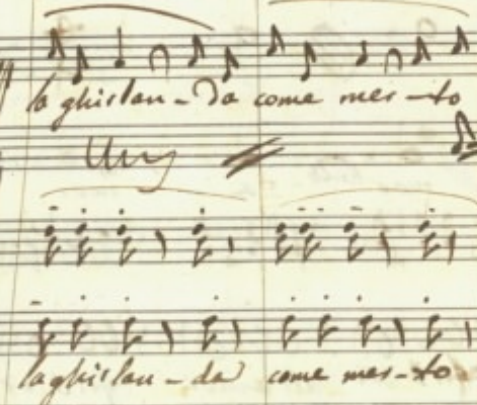 la ghirlan-da come mer-to
Unis
la ghirlan-da come mer-to